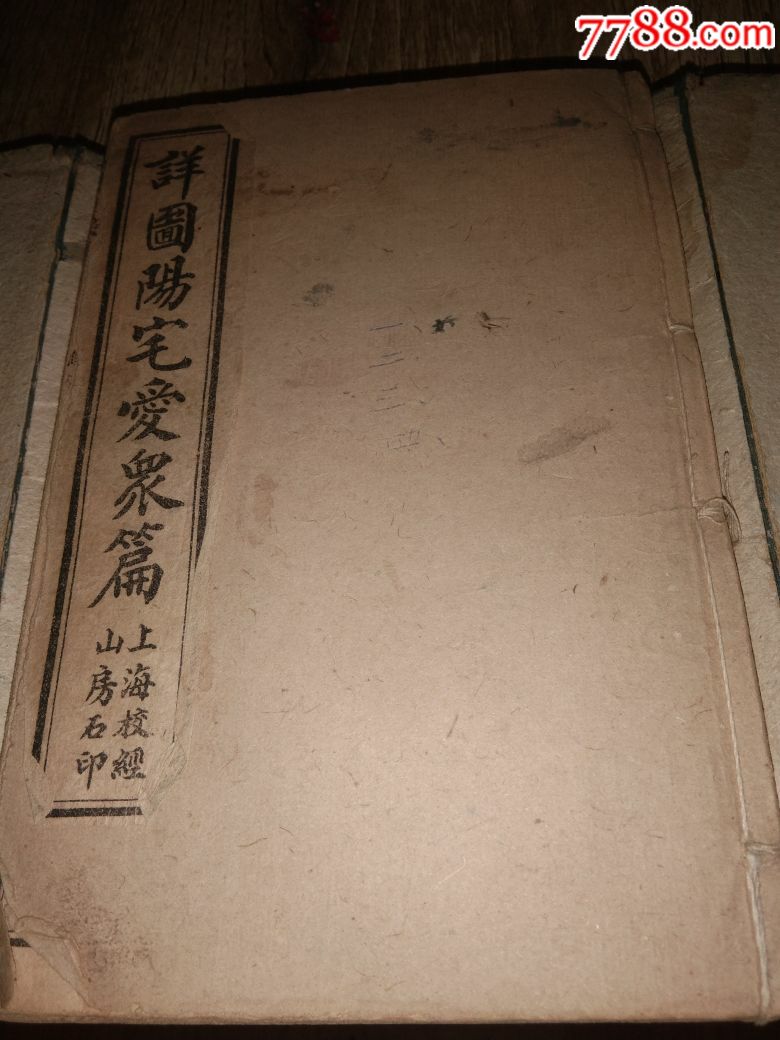 7788.com
詳圖陽宅愛衆篇
上海校經
山房石印
一二三四